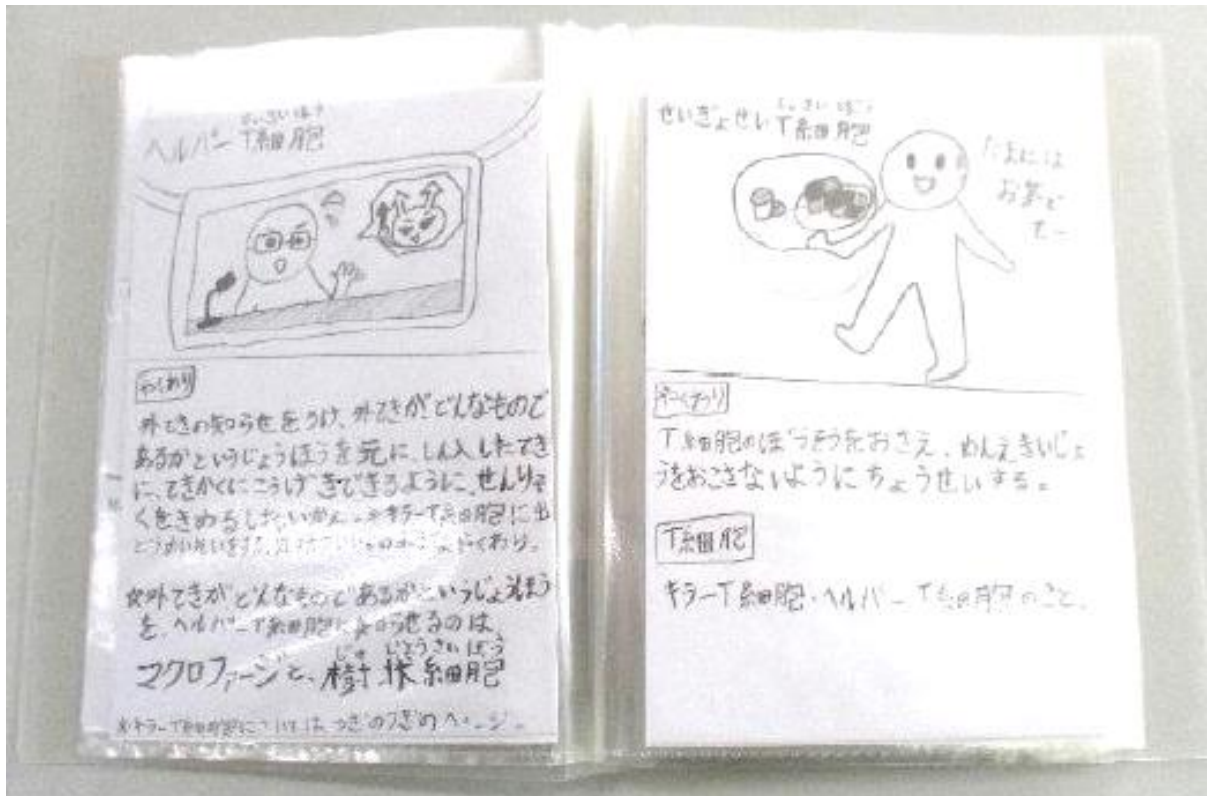 ヘルパーT細胞
やくわり
外てきの知らせをうけ、外てきがどんなもので
あるかというじょうほうを元に、しん入したてき
に、てきかくにこうげきできるように、せんりゃ
くをきめるしれいかん。※キラーT細胞に出
☆外てきがどんなものであるかというじょうほう
を、ヘルパーT細胞に知らせるのは
じゅじょうさいぼう
マクロファージと、樹状細胞
※キラーT細胞については、つぎのつぎのページ。
せいぎょせいT細胞
たまには
お茶で
も
やくわり
T細胞のぼうそうをおさえ、めんえきいじょ
うをおこさないようにちょうせいする。
T細胞
キラーT細胞・ヘルパーT細胞のこと。